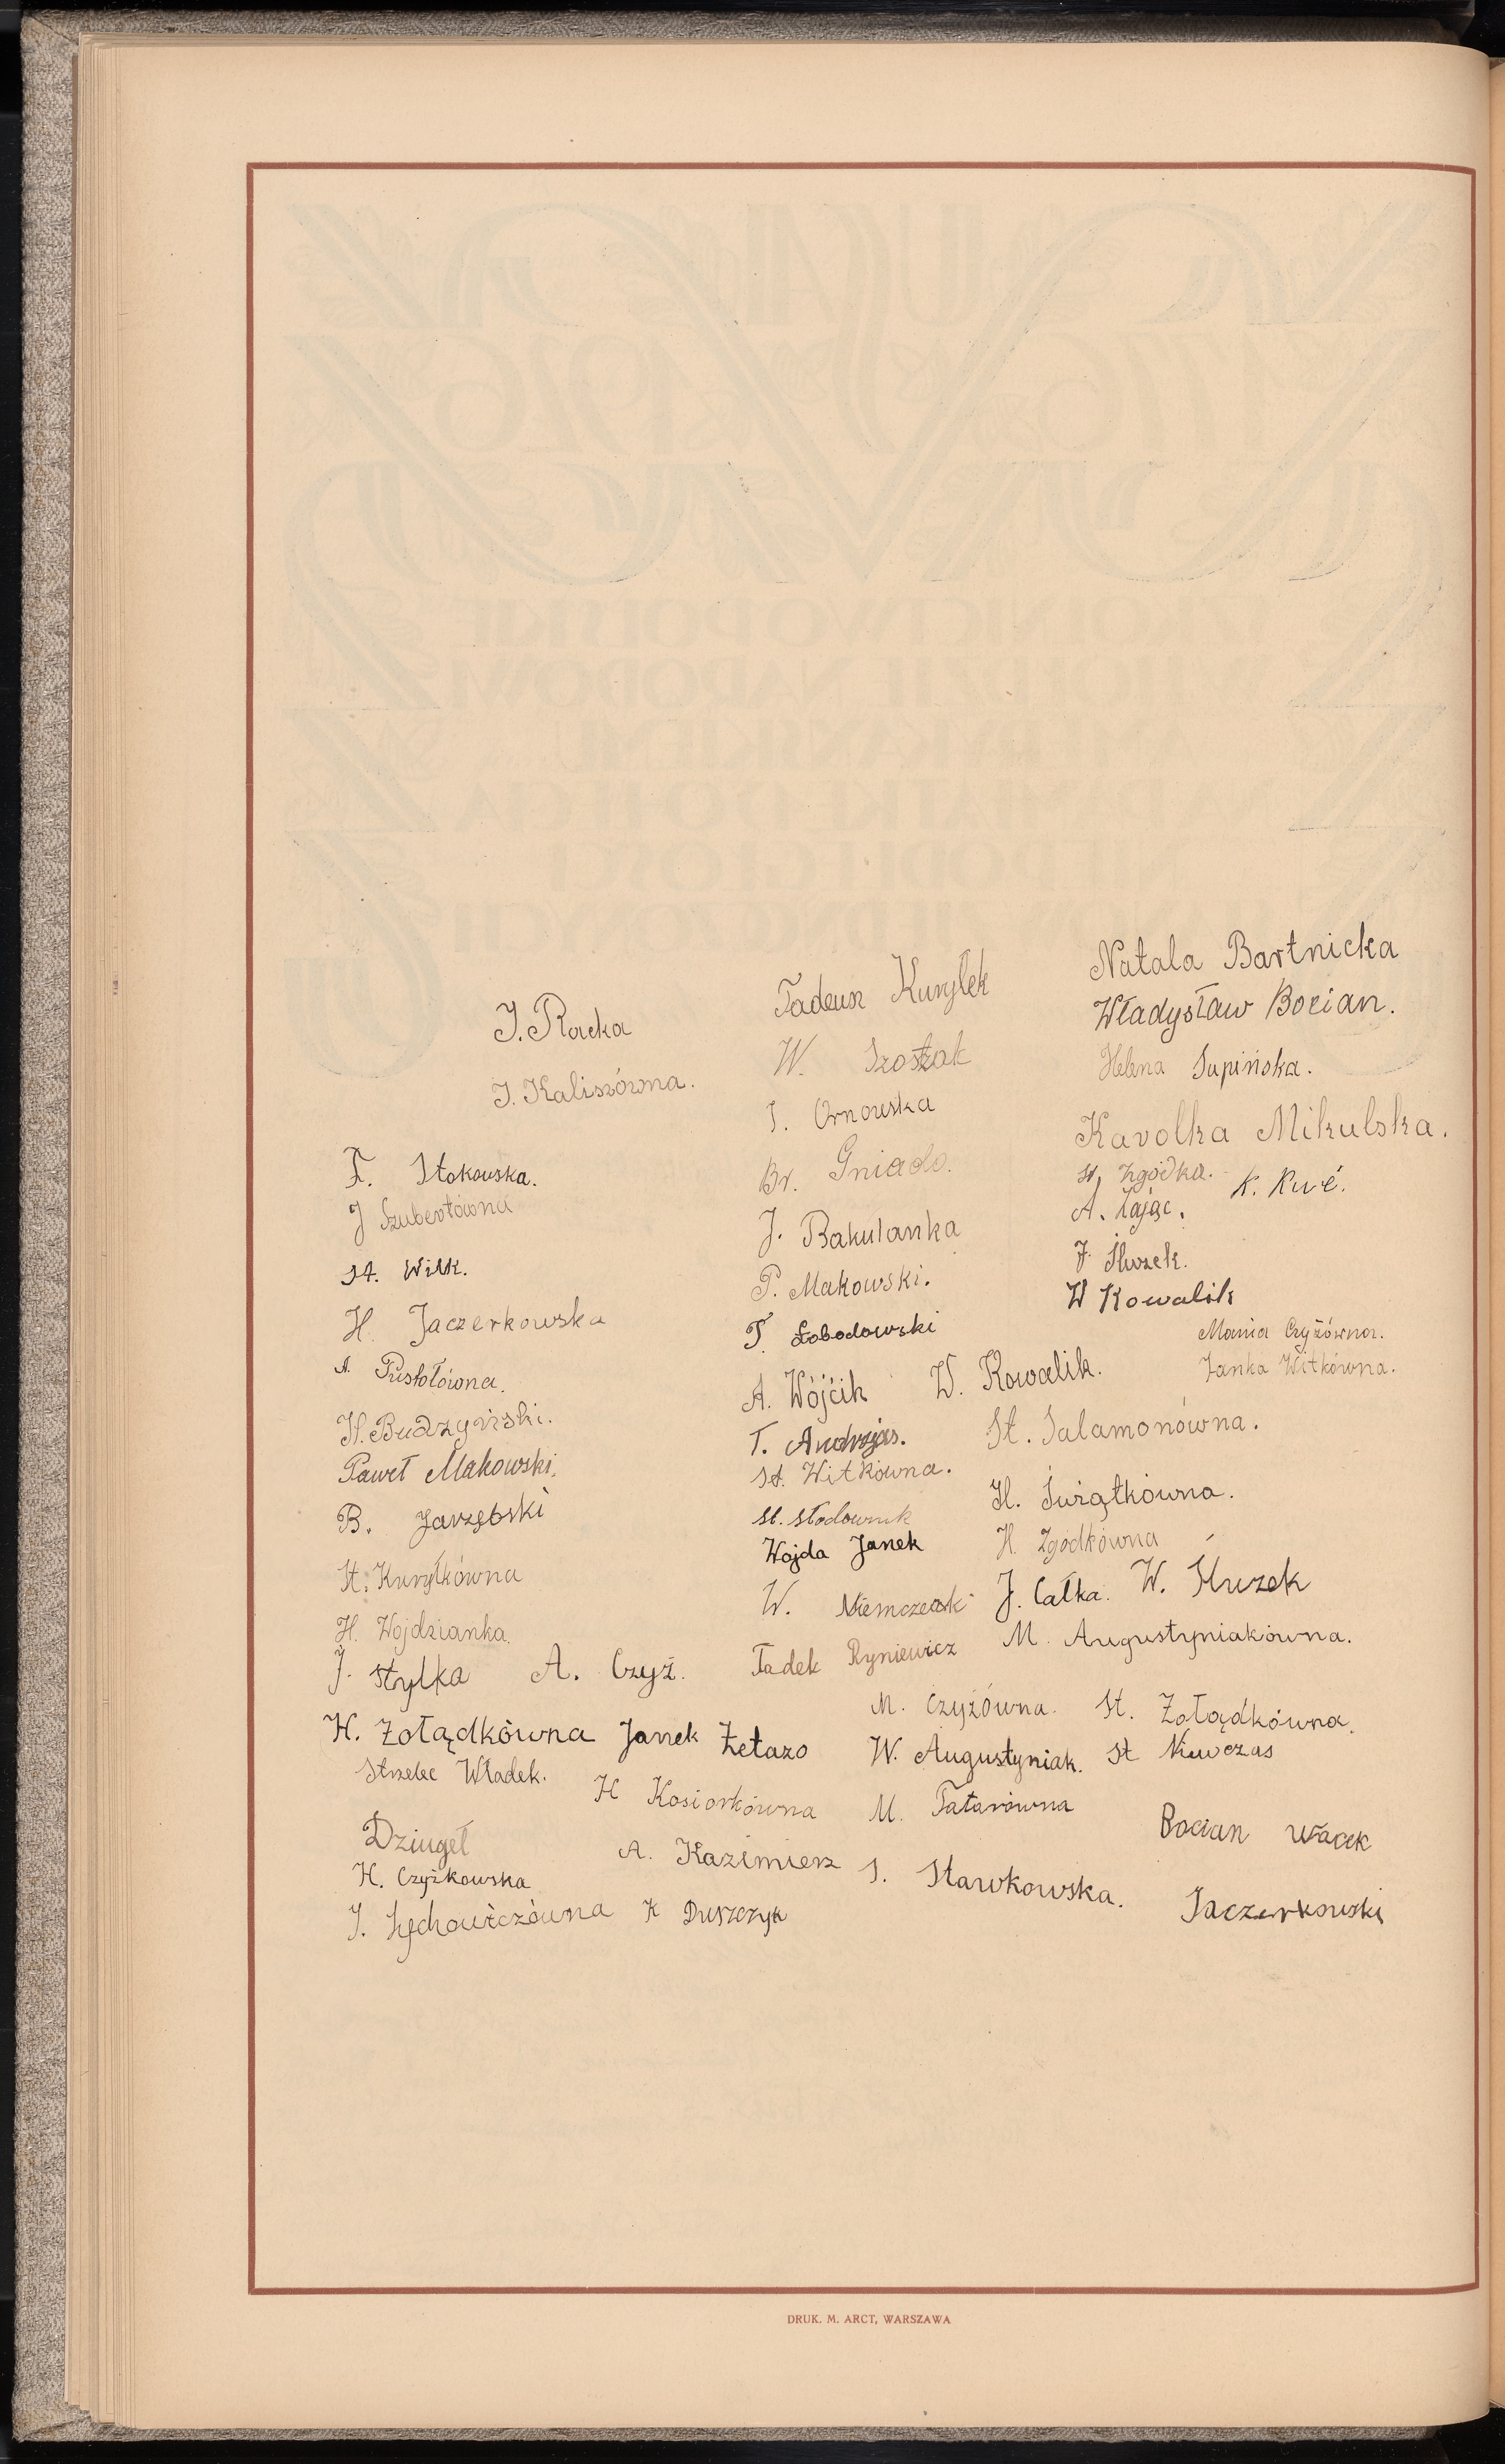 J. Racka
J. Kaliszówna.
F. Stokowska.
J Szubertówna
St. Wilk.
H. Jaczerkowska
A. Pustołówna.
H. Budzyński.
Paweł Makowski.
B. Jarzębski
St. Kuryłkówna
H. Wojdzianka.
J. Stylka A. Czyż.
H. Żołądkówna Janek Żelazo
Strzelec Władek.
H Kosiorkówna
Dziugeł
A. Kazimierz
H. Czyżkowska
J. Lychowiczówna K Duszczyk
Tadeusz Kuryłek
W. Szostak
J. Ornowska
Br. Gniado.
J. Bakulanka
P. Makowski.
T. Łobodowski
A. Wójcik W. Kowalik.
T. Andrzejas.
St. Witkówna.
St. Słodownik
Wojda Janek
W. Niemczewski
Tadek Ryniewicz
Natala Bartnicka
Władysław Bocian.
Helena Supińska.
Karolka Mikulska.
St. Zgódka.
A. Zając. K. Kuć.
J. Słuzek.
W Kowalik
Mania Czyżówna.
Janka Witkówna.
St. Salamonówna.
H. Świątkówna.
H. Zgódkówna
J. Całka. W. Słuzek
M. Augustyniakówna.
M. Czyżówna. St. Żołądkówna.
W. Augustyniak. St Niewczas
M. Tatarówna
Bocian Wacek
S. Stawkowska.
Jaczerkowski
DRUK. M. ARCT, WARSZAWA